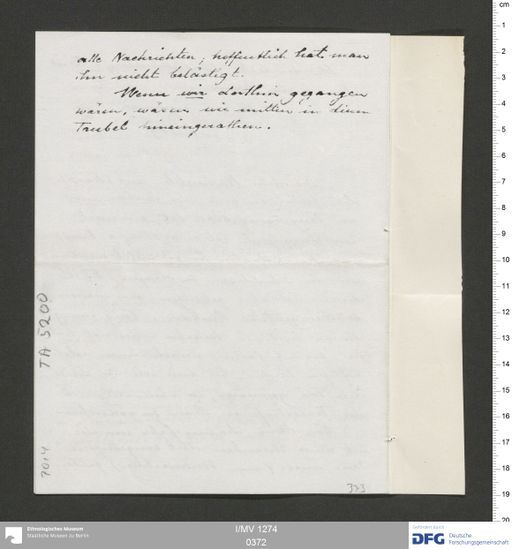 alle Nachrichten, hoffentlich hat man
ihn nicht belästigt.
Wenn wir dorthin gegangen
wären, wären wir mitten in diesen
Trubel hineingerathen.
TA 5200
7014
373
Ethnologisches Museum
Staatliche Museen zu Berlin
I/MV 1274
0372
Gefördert durch
DFG
Deutsche
Forschungsgemeinschaft
cm
1
2
3
4
5
6
7
8
9
10
11
12
13
14
15
16
17
18
19
20